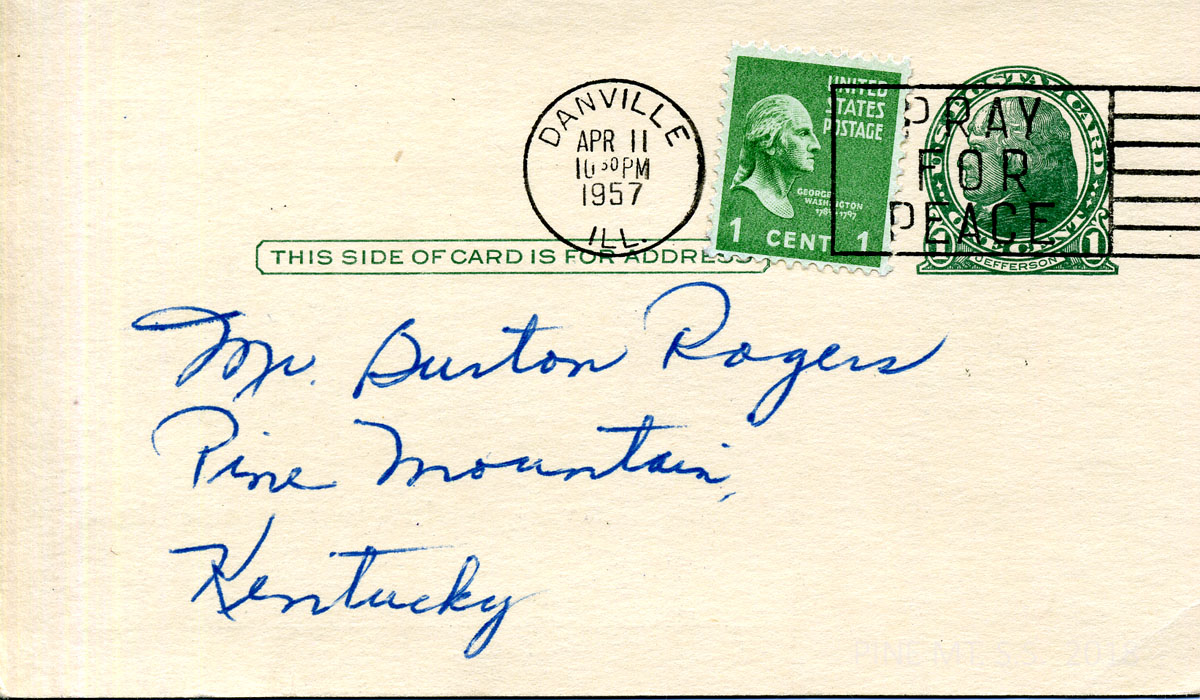 DANVILLE
APR 11
10 30 PM
1957
ILL.
UNITED
STATES
POSTAGE
GEORGE
WASHINGTON
1789-1797
1 CENT 1
U·S·POSTAL CARD
ONE CENT
1 1
JEFFERSON
PRAY
FOR
PEACE
THIS SIDE OF CARD IS FOR ADDRESS
Mr. Burton Rogers
Pine Mountain,
Kentucky
PINE MT. S.S. 2018